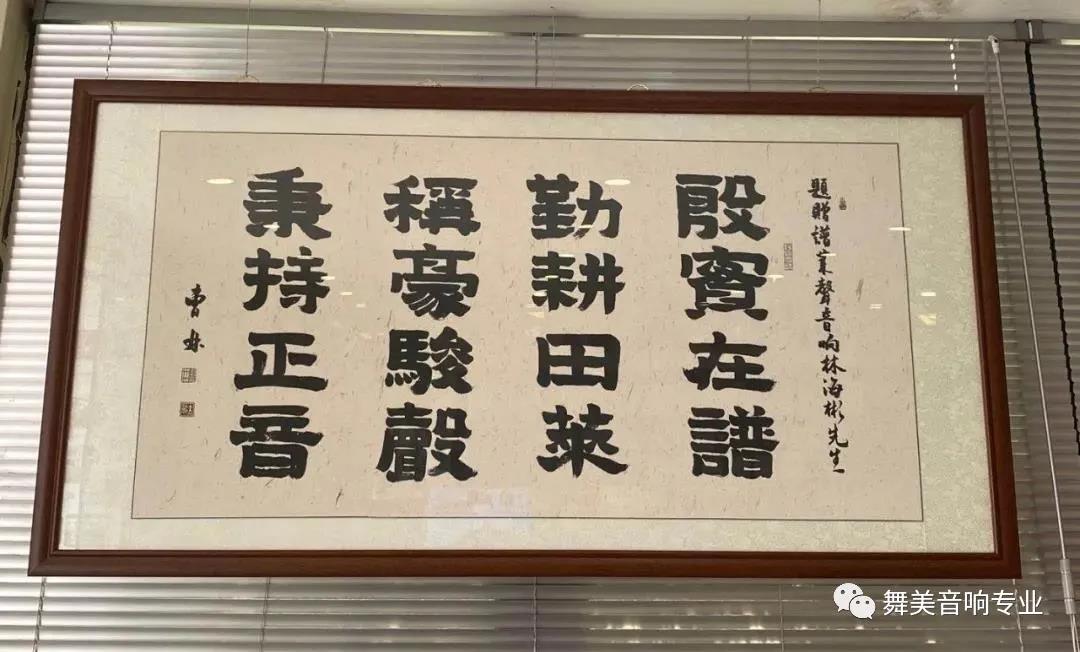 題贈譜萊聲音响林海彬先生
殷實在譜
勤耕田萊
稱豪駿聲
秉持正音
曹
舞美音响专业